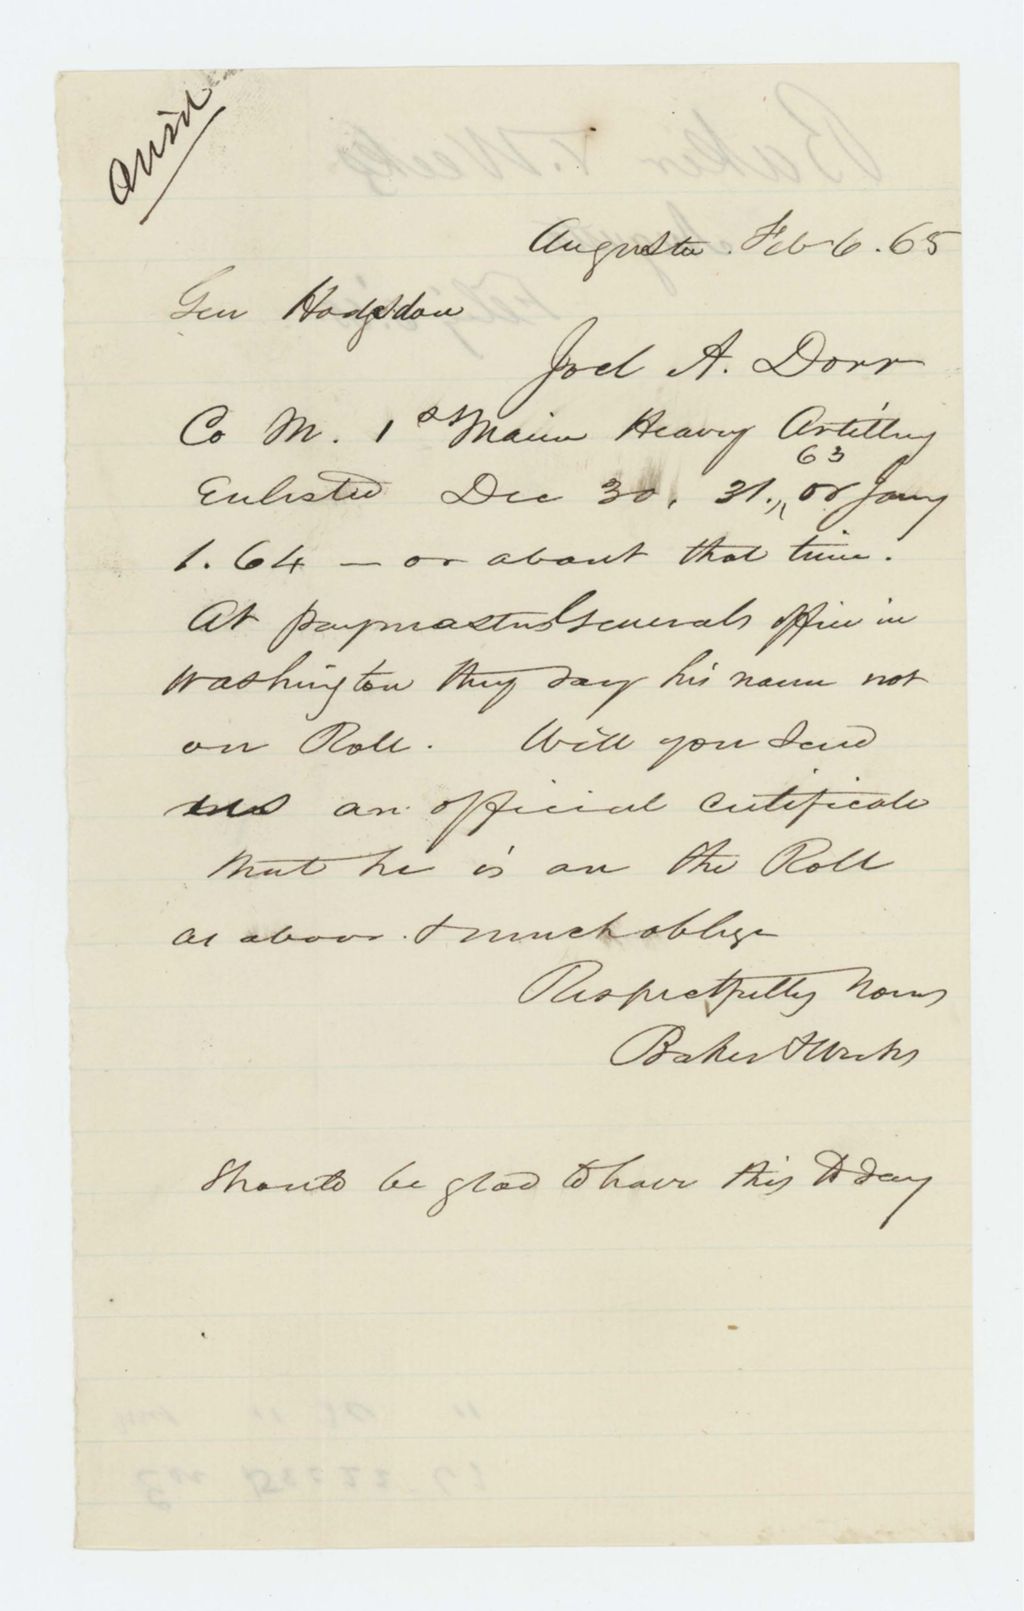 Ansd
Augusta. Feb 6. 65
Gen Hodgsdon
Joel A. Dorr
Co M. 1st Maine Heavy Artillery
63
Enlisted Dec 30, 31.,, or Jany
1. 64 — or about that time.
At paymaster Generals office in
Washington they say his name not
on Roll. Will you send
us an official certificate
that he is on the Roll
as above. & much oblige
Respectfully Yours
Baker & Weeks
Should be glad to have this to day